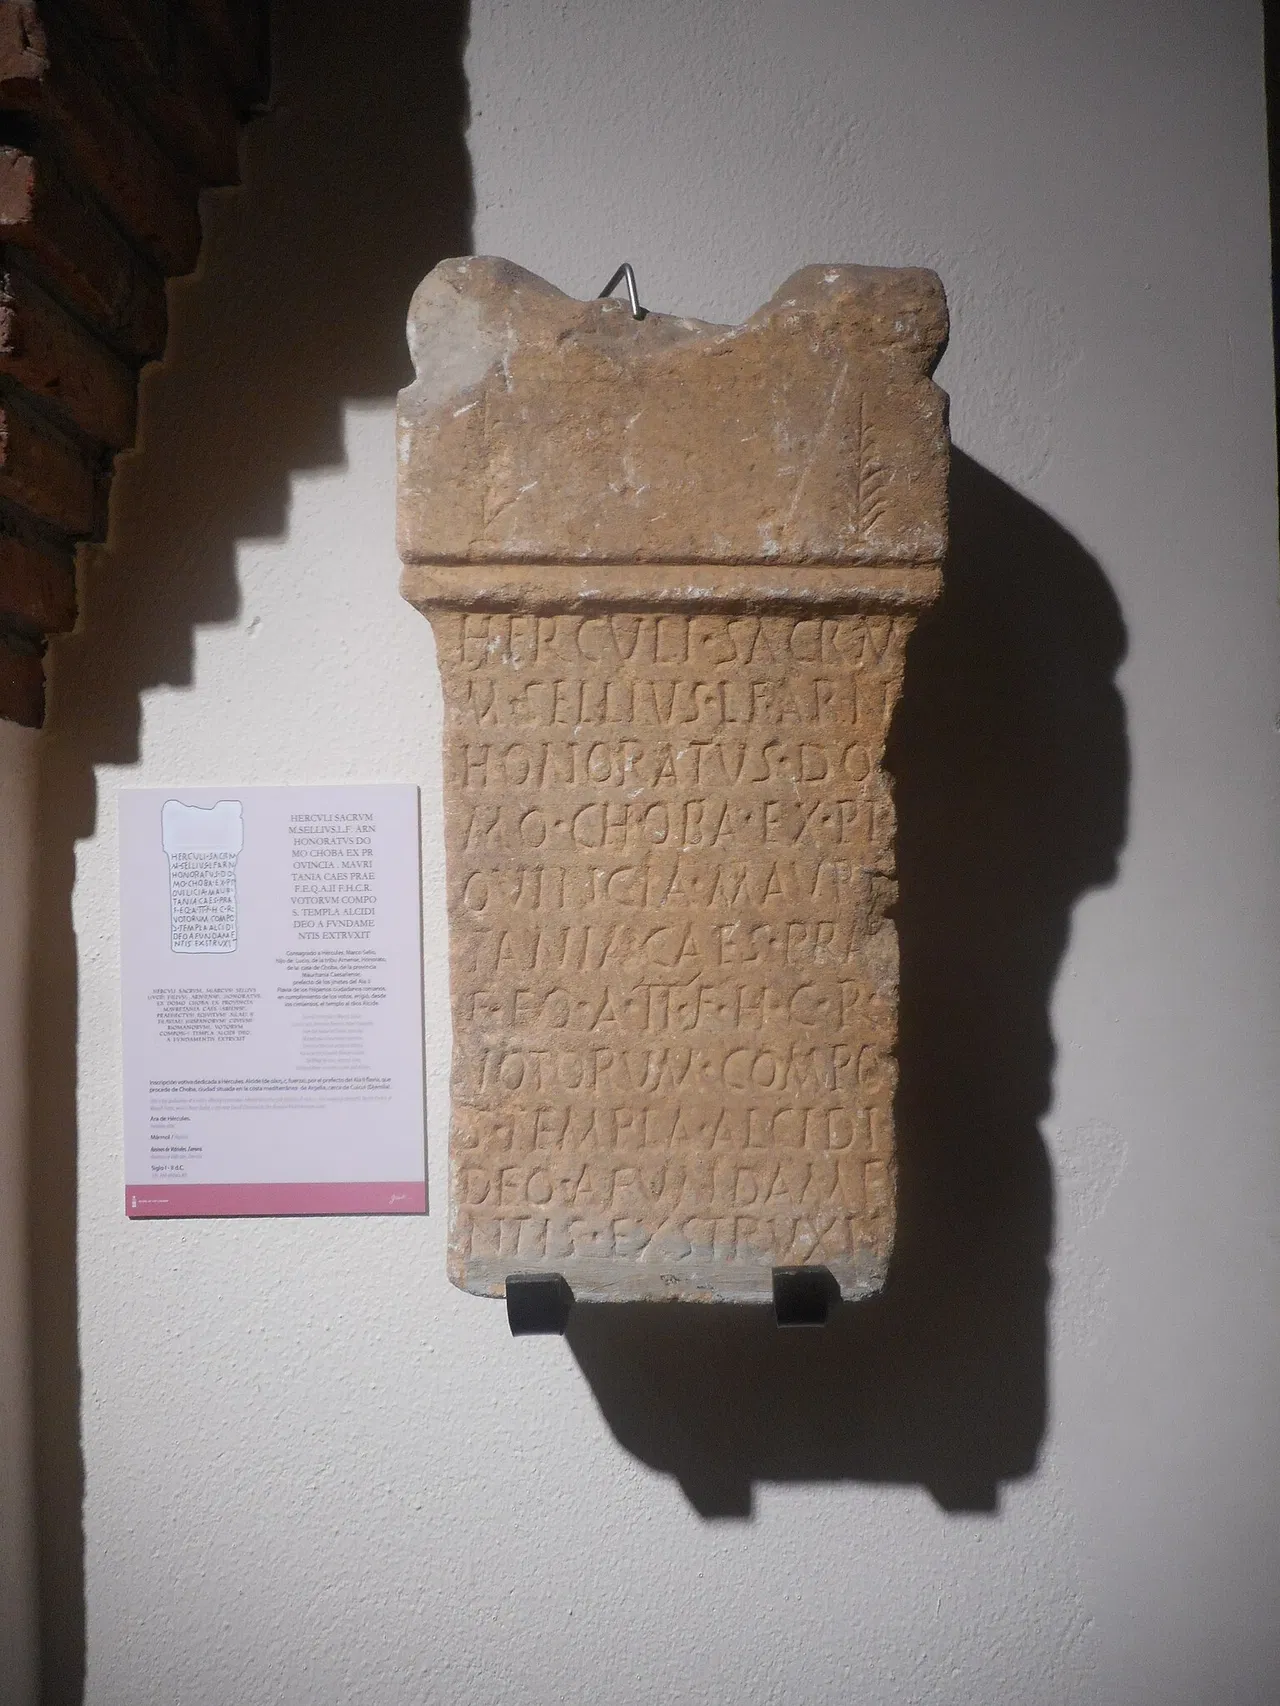 HERCVLI·SACRV
M·SELLIVS·L·F·ARN
HONORATVS·DO
MO·CHOBA·EX·PR
OVINCIA·MAVR
TANIA·CAES·PRA
F·EQ·A·II·F·H·C·R·
VOTORVM·COMPO
S·TEMPLA·ALCIDI
DEO·A·FVNDAME
NTIS·EXSTRVXIT
HERCVLI SACRVM
M.SELLIVS.L.F. ARN
HONORATVS DO
MO CHOBA EX PR
OVINCIA . MAVRI
TANIA CAES PRAE
F.E.Q.A.II F.H.C.R.
VOTORVM COMPO
S. TEMPLA ALCIDI
DEO A FVNDAME
NTIS EXTRVXIT
HERCULI·SACRM
M·SELLIUS·L·F·ARN
HONORATUS·DO
MO·CHOBA·EX·P
OVINCIA·MAUR
TANIA CAES·PRA
F·EQ·A·II·F·H·C·R·
VOTORUM·COMPO
S·TEMPLA ALCIDI
DEO·A·FUNDAME
NTIS·EXSTRUXIT
Consagrado a Hércules, Marco Selio,
hijo de Lucio, de la tribu Arnense, Honorato,
de la casa de Choba, de la provincia
Mauritania Caesariense,
prefecto de los jinetes del Ala II
Flavia de los Hispanos ciudadanos romanos,
en cumplimiento de los votos, erigió, desde
los cimientos, el templo al dios Alcide
HERCVLI SACRVM, MARCVS SELLIVS
LVCII FILIVS, ARNENSE, HONORATVS,
EX DOMO CHOBA EX PROVINCIA
MAVRETANIA CAESARIENSE,
PRAEFECTVS EQVITVM ALAE II
FLAVIAE HISPANORVM CIVIVM
ROMANORVM, VOTORVM
COMPOS TEMPLA ALCIDI DEO,
A FVNDAMENTIS EXTRVXIT
Inscripción votiva dedicada a Hércules Alcide (de αλκή, fuerza), por el prefecto del Ala II Flavia, que
procede de Choba, ciudad situada en la costa mediterránea de Argelia, cerca de Cuicul (Djemila).
Ara de Hércules
Mármol /
Rosinos de Vidriales, Zamora
Siglo I - II d.C.